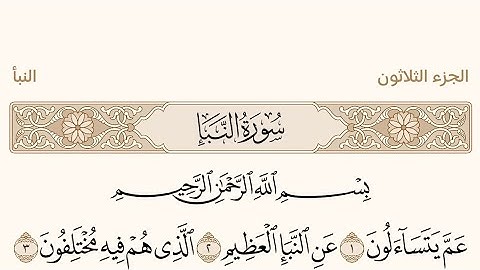 الجزء الثلاثون
النبأ
سُورَةُ النَّبَإِ
بِسْمِ ٱللَّهِ ٱلرَّحْمَٰنِ ٱلرَّحِيمِ
عَمَّ يَتَسَآءَلُونَ ١ عَنِ ٱلنَّبَإِ ٱلْعَظِيمِ ٢ ٱلَّذِى هُمْ فِيهِ مُخْتَلِفُونَ ٣